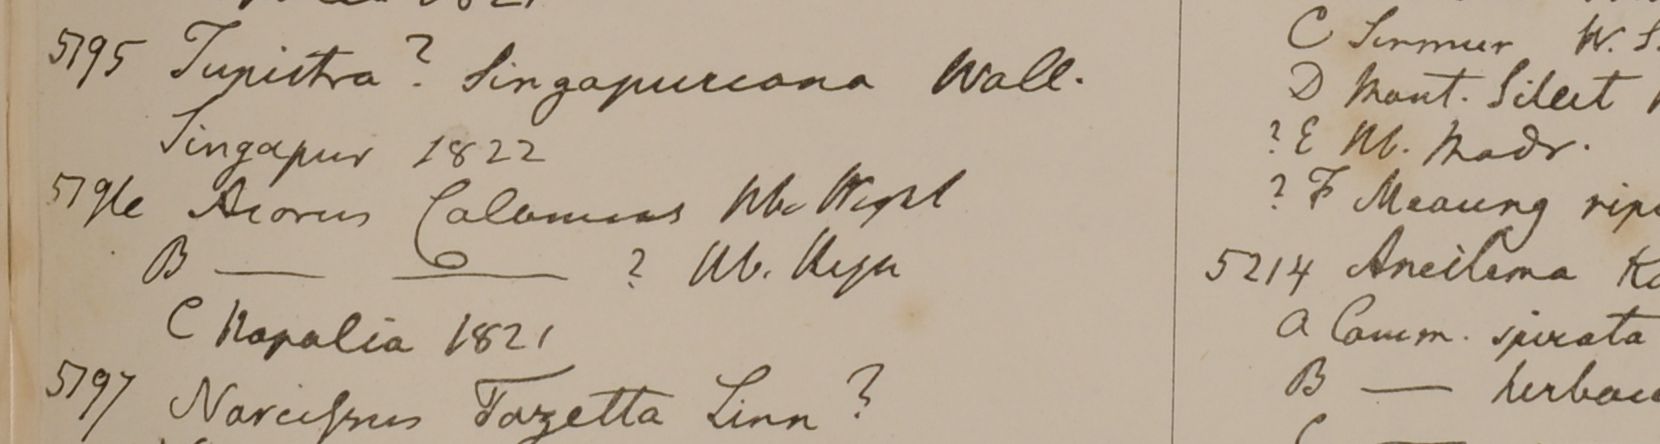 5195 Tupistra? Singapureana Wall.
Singapur 1822
5196 Acorus Calamus Hb. Wight
B — — ? Hb. Heyn
C Napalia 1821
5197 Narcissus Tazetta Linn?
C Sirmur W. S.
D Mont. Silet
? E Hb. Madr.
? F Meaung
5214 Aneilema
a Comm. spirata
B —